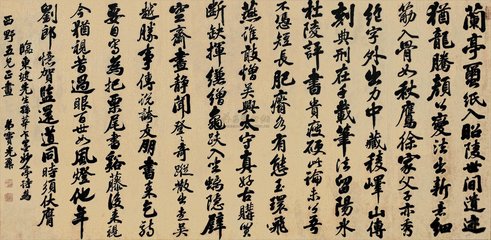 蘭亭繭紙入昭陵世間遺迹
猶龍騰顏公變法出新意細
筋入骨如秋鷹徐家父子亦秀
絕字外出力中藏稜嶧山傳
刻典刑在千載筆法留陽冰
杜陵評書貴瘦硬此論未公吾
不憑短長肥瘠各有態玉環飛
燕誰敢憎吳興太守真好古購買
斷缺揮縑繒龜趺入坐螭隱壁
空齋晝靜聞登登奇蹤散出走吳
越勝事傳說誇友朋書來乞詩
要自寫為把栗尾書谿藤後來視
今猶視昔過眼百世如風燈他年
劉郎憶賀監還道同時須服膺
臨東坡先生孫莘老求墨妙亭詩為
西野五兄正 弟竇光鼐